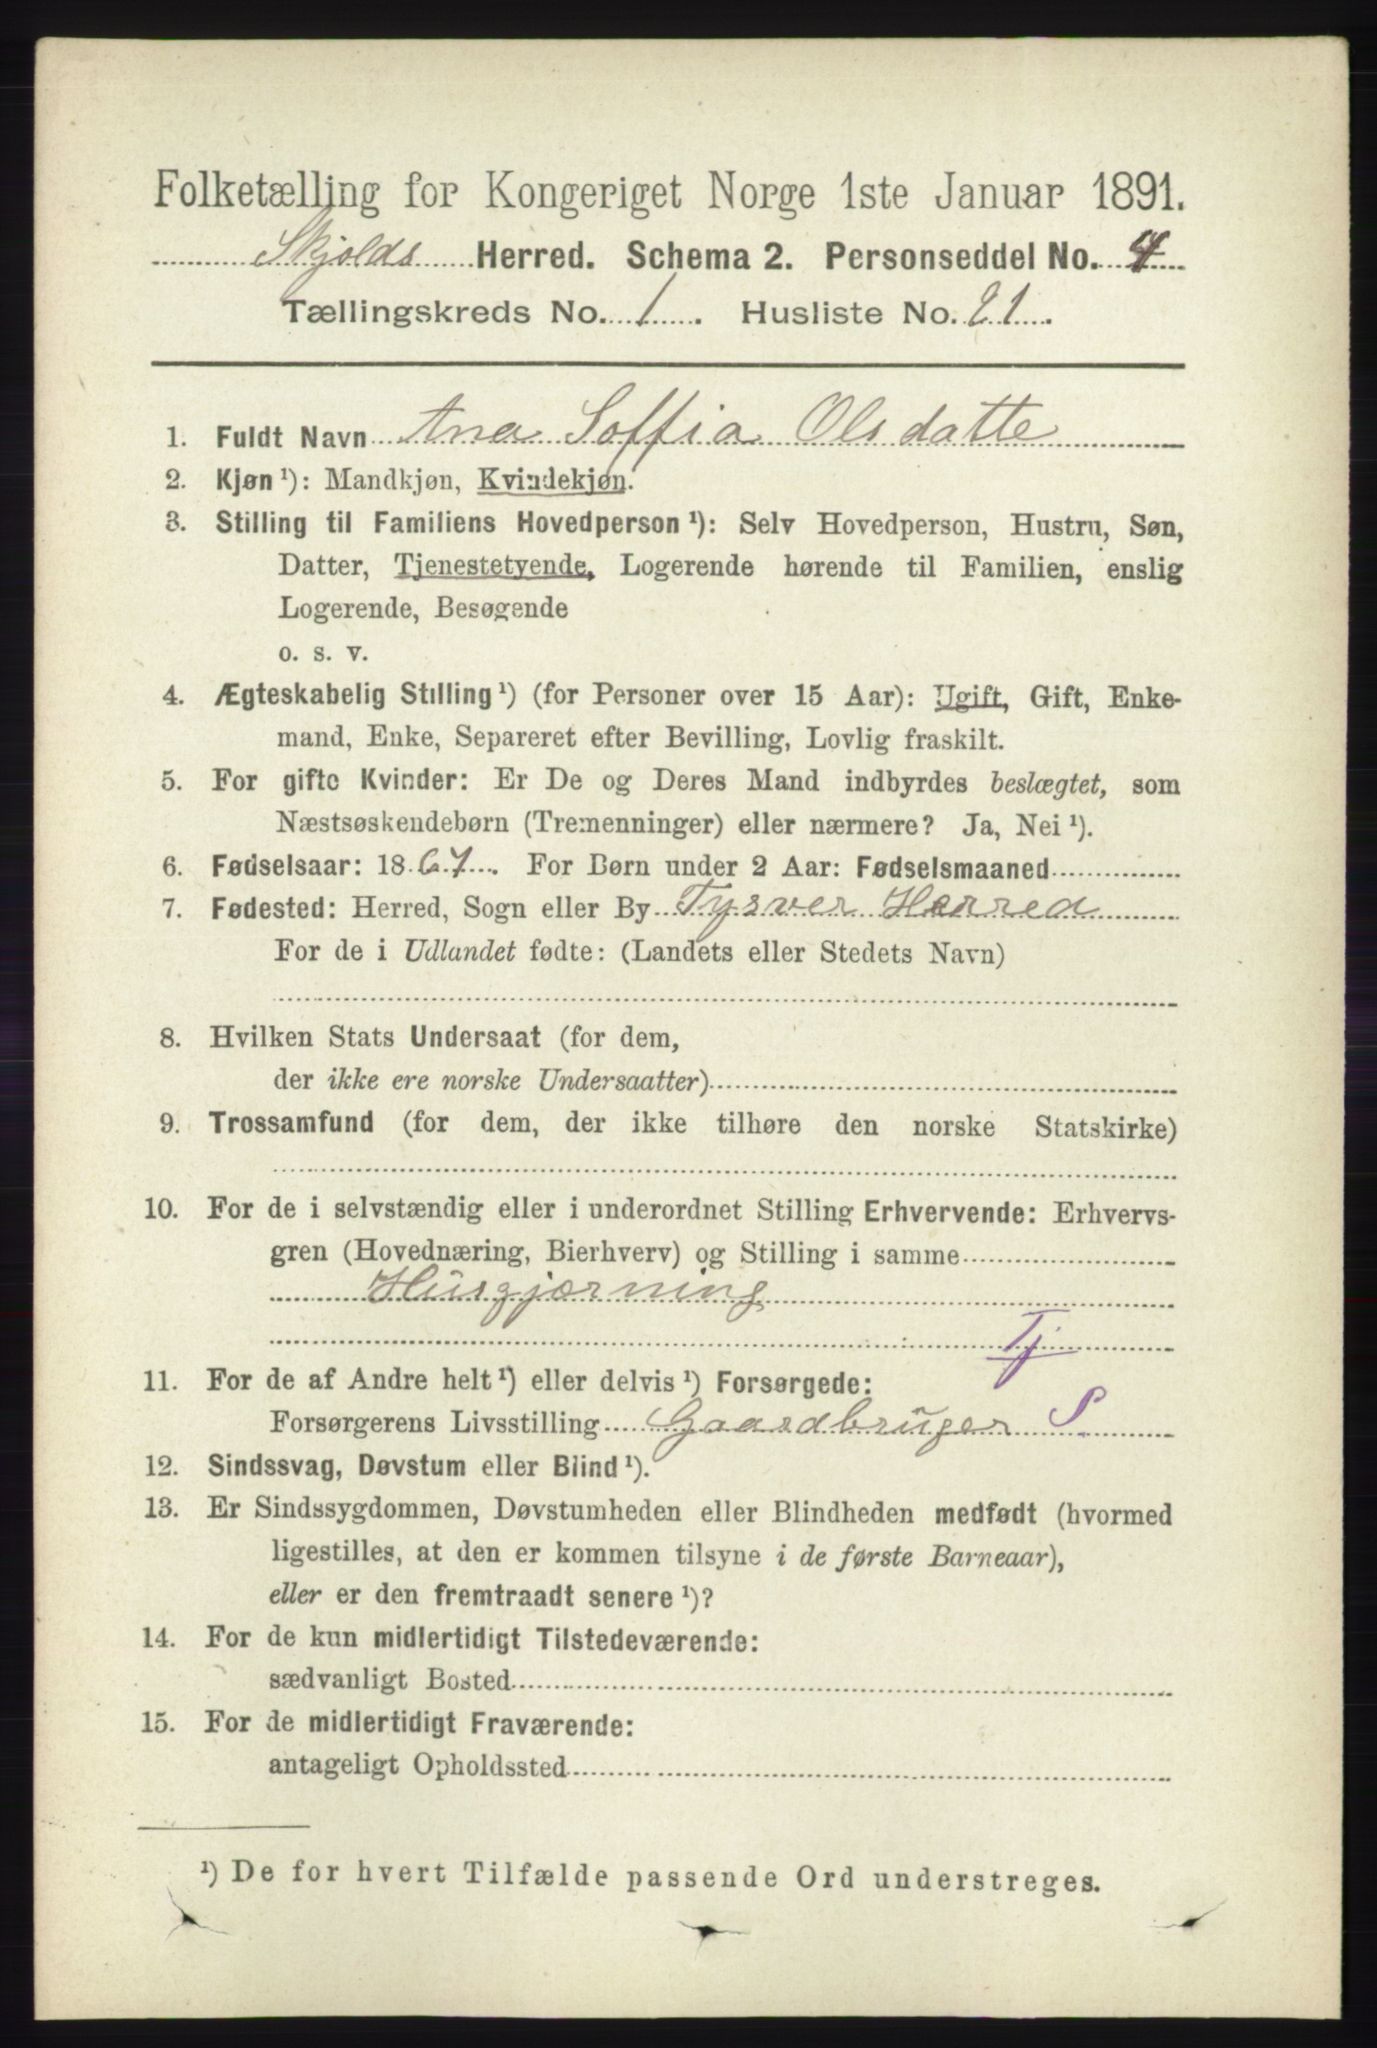 Folketælling for Kongeriget Norge 1ste Januar 1891.
Skjolds Herred. Schema 2. Personseddel No. 4
Tællingskreds No. 1. Husliste No. 21.
1. Fuldt Navn Ana Soffia Olsdatte
2. Kjøn ¹): Mandkjøn, Kvindekjøn.
3. Stilling til Familiens Hovedperson ¹): Selv Hovedperson, Hustru, Søn,
Datter, Tjenestetyende, Logerende hørende til Familien, enslig
Logerende, Besøgende
o. s. v.
4. Ægteskabelig Stilling ¹) (for Personer over 15 Aar): Ugift, Gift, Enke-
mand, Enke, Separeret efter Bevilling, Lovlig fraskilt.
5. For gifte Kvinder: Er De og Deres Mand indbyrdes beslægtet, som
Næstsøskendebørn (Tremenninger) eller nærmere? Ja, Nei ¹).
6. Fødselsaar: 1867. For Børn under 2 Aar: Fødselsmaaned
7. Fødested: Herred, Sogn eller By Tysver Herred
For de i Udlandet fødte: (Landets eller Stedets Navn)
8. Hvilken Stats Undersaat (for dem,
der ikke ere norske Undersaatter)
9. Trossamfund (for dem, der ikke tilhøre den norske Statskirke)
10. For de i selvstændig eller i underordnet Stilling Erhvervende: Erhvervs-
gren (Hovednæring, Bierhverv) og Stilling i samme
Husgjærning
Tj
11. For de af Andre helt ¹) eller delvis ¹) Forsørgede:
Forsørgerens Livsstilling Gaardbruger S
12. Sindssvag, Døvstum eller Blind ¹).
13. Er Sindssygdommen, Døvstumheden eller Blindheden medfødt (hvormed
ligestilles, at den er kommen tilsyne i de første Barneaar),
eller er den fremtraadt senere ¹)?
14. For de kun midlertidigt Tilstedeværende:
sædvanligt Bosted
15. For de midlertidigt Fraværende:
antageligt Opholdssted
¹) De for hvert Tilfælde passende Ord understreges.